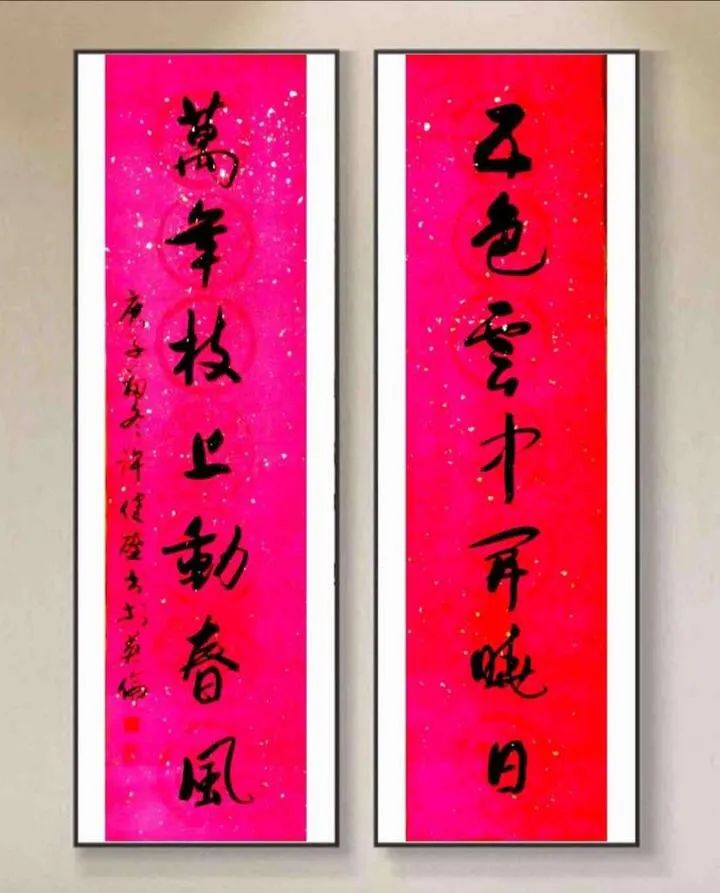 五色雲中開曉日
萬年枝上動春風
庚子初冬許健盛書於英倫